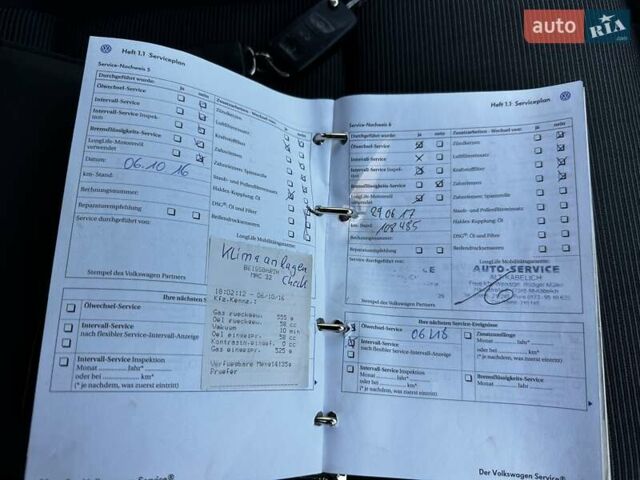 auto RIA
.com
Heft 1.1 Serviceplan
Service-Nachweis 5
Durchgeführt wurde: ja nein
Ölwechsel-Service
Intervall-Service
Intervall-Service Inspektion
Bremsflüssigkeits-Service
LongLife-Motorenöl verwendet
Datum: 06.10.16
km-Stand:
Rechnungsnummer:
Reparaturempfehlung
Service durchgeführt von:
Stempel des Volkswagen Partners
Zusatzarbeiten - Wechsel von: ja nein
Zündkerzen
Luftfiltereinsatz
Kraftstofffilter
Zahnriemen
Zahnriemen-Spannrolle
Staub- und Pollenfiltereinsatz
Haldex-Kupplung: Öl
DSG®: Öl und Filter
Reifendichtmittel
LongLife Mobilitätsgarantie:
Klimaanlagen
Check
BEISSBARTH
MAC 32
18:02:12 - 06/10/16
Kfz-Kennz.:
Gas rueckgew.: 555 g
Oel rueckgew.: 58 cc
Vakuum 10 min
Oel eingespr.: 58 cc
Kontrastm.eingef.: 0 cc
Gas eingespr.: 525 g
Pruefer
Ihre nächsten Service
Ölwechsel-Service
Intervall-Service
nach flexibler Service-Intervall-Anzeige
Intervall-Service Inspektion
Monat Jahr*
oder bei km*
(* je nachdem, was zuerst eintritt)
Heft 1.1 Serviceplan
Service-Nachweis 6
Durchgeführt wurde: ja nein
Ölwechsel-Service
Intervall-Service
Intervall-Service Inspektion
Bremsflüssigkeits-Service
LongLife-Motorenöl verwendet
29.06.17
km-Stand: 108485
Rechnungsnummer:
Reparaturempfehlung
Service durchgeführt
29
Stempel des Volkswagen Partners
Zusatzarbeiten - Wechsel von: ja nein
Zündkerzen
Luftfiltereinsatz
Kraftstofffilter
Zahnriemen
Zahnriemen-Spannrolle
Staub- und Pollenfiltereinsatz
Haldex-Kupplung: Öl
DSG®: Öl und Filter
Reifendichtmittel
LongLife Mobilitätsgarantie:
AUTO-SERVICE
ALT KÄBELICH
Ihre nächsten Service-Ereignisse
Ölwechsel-Service
Intervall-Service
nach flexibler Service-Intervall-Anzeige
Intervall-Service Inspektion
Monat Jahr*
oder bei km*
(* je nachdem, was zuerst eintritt)
06/18
Zusatzumfänge
Bremsflüssigkeits-Service
Monat Jahr
Der Volkswagen Service®